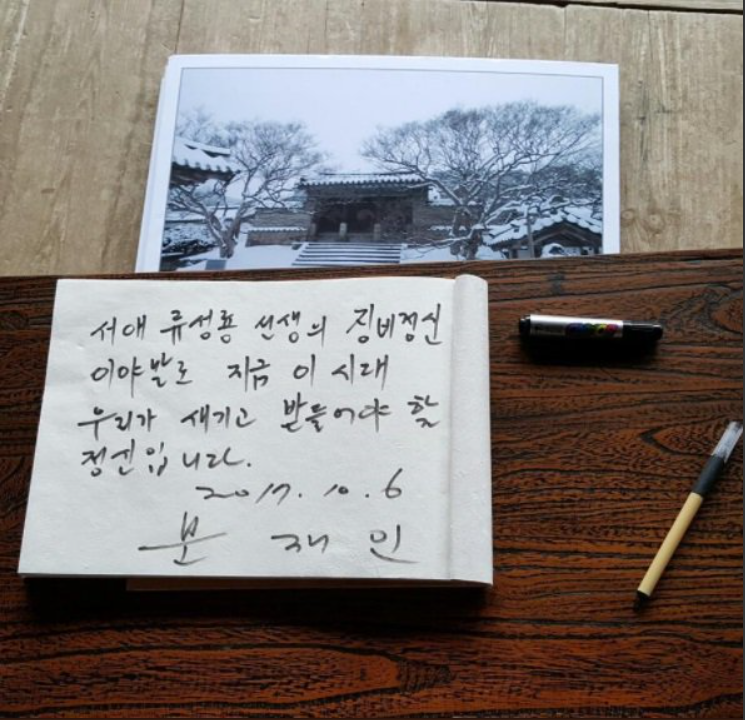 서애 류성룡 선생의 징비정신
이야말로 지금 이 시대
우리가 새기고 받들어야 할
정신입니다.
2017. 10. 6
문 재 인